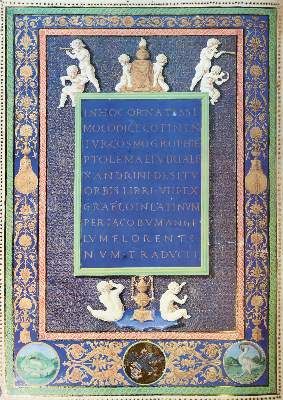 IN HOC ORNATISSI
MO CODICE CONTINEN
TVR COSMOGRAPHIE
PTOLEMAEI VIRI ALE
XANDRINI DE SITV
ORBIS LIBRI VIII EX
GRAECO IN LATINVM
PER IACOBVM ANGE
LVM FLORENTI
NVM TRADVCTI